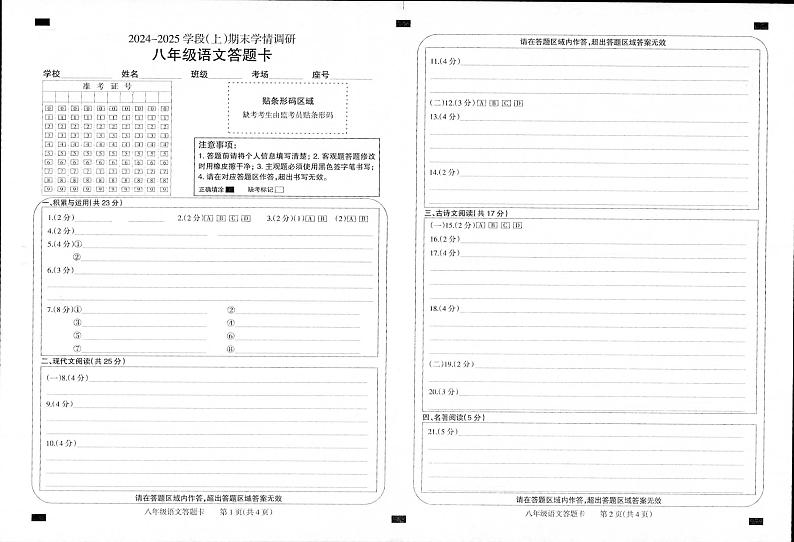 2024-2025 学段(上)期末学情调研
八年级语文答题卡
学校 姓名 班级 考场 座号
准考证号
[0] [0] [0] [0] [0] [0] [0] [0] [0]
[1] [1] [1] [1] [1] [1] [1] [1] [1]
[2] [2] [2] [2] [2] [2] [2] [2] [2]
[3] [3] [3] [3] [3] [3] [3] [3] [3]
[4] [4] [4] [4] [4] [4] [4] [4] [4]
[5] [5] [5] [5] [5] [5] [5] [5] [5]
[6] [6] [6] [6] [6] [6] [6] [6] [6]
[7] [7] [7] [7] [7] [7] [7] [7] [7]
[8] [8] [8] [8] [8] [8] [8] [8] [8]
[9] [9] [9] [9] [9] [9] [9] [9] [9]
贴条形码区域
缺考考生由监考员贴条形码
注意事项:
1. 答题前请将个人信息填写清楚; 2. 客观题答题修改
时用橡皮擦干净; 3. 主观题必须使用黑色签字笔书写;
4. 请在对应答题区作答,超出书写无效。
正确填涂 缺考标记
一、积累与运用(共 23 分)
1.(2 分) 2.(2 分)[A] [B] [C] [D] 3.(2 分)(1)[A] [B] (2)[A] [B]
4.(2 分)
5.(4 分)①
②
6.(3 分)
7.(8 分)① ②
③ ④
⑤ ⑥
⑦ ⑧
二、现代文阅读(共 25 分)
(一)8.(4 分)
9.(4 分)
10.(4 分)
请在答题区域内作答,超出答题区域答案无效
八年级语文答题卡 第 1 页(共 4 页)
请在答题区域内作答,超出答题区域答案无效
11.(4 分)
(二)12.(3 分)[A] [B] [C] [D]
13.(4 分)
14.(2 分)
三、古诗文阅读(共 17 分)
(一)15.(2 分)[A] [B] [C] [D]
16.(2 分)
17.(4 分)
18.(4 分)
(二)19.(2 分)
20.(3 分)
四、名著阅读(5 分)
21.(5 分)
请在答题区域内作答,超出答题区域答案无效
八年级语文答题卡 第 2 页(共 4 页)